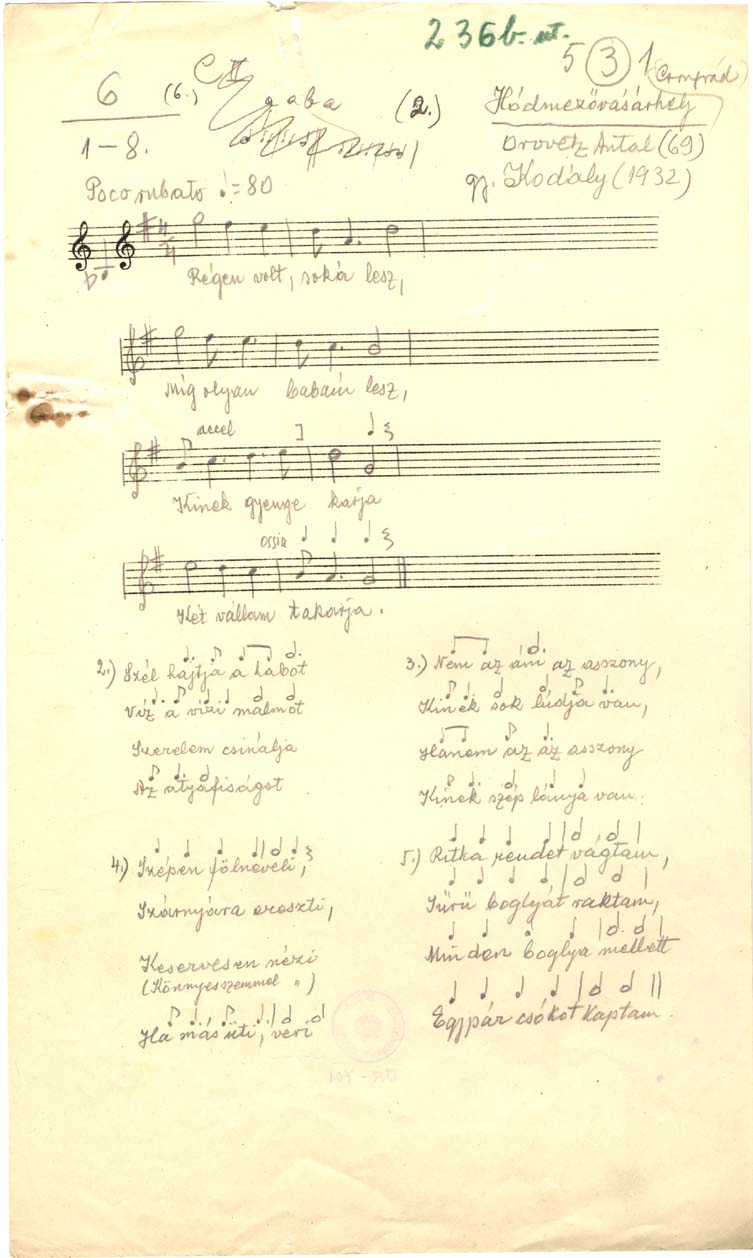 236b. st.
5 3 1 (Csongrád)
6 (6.) gaba (2.) Hódmezővásárhely
1-8. Orovetz Antal (69)
Poco rubato ♩=80 gy. Kodály (1932)
4
4
Régen volt, soká lesz,
Míg olyan babám lesz,
accel
Kinek gyenge karja
ossia
Két vállam takarja.
2.) Szél hajtja a habot
Víz a vízi malmot
Szerelem csinálja
Az atyafiságot
3.) Nem az ám az asszony,
Kinek sok lúdja van,
Hanem az az asszony
Kinek szép lánya van.
4.) Szépen fölneveli,
Szárnyára ereszti,
Keservesen nézi
(Könnyesszemmel " )
Ha más üti, veri
5.) Ritka rendet vágtam,
Sürü boglyát raktam,
Minden boglya mellett
Egypár csókot kaptam.